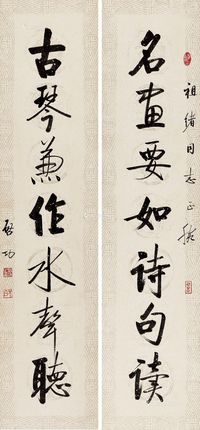 祖绪同志正腕
名画要如詩句读
古琴兼作水聲聽
启功